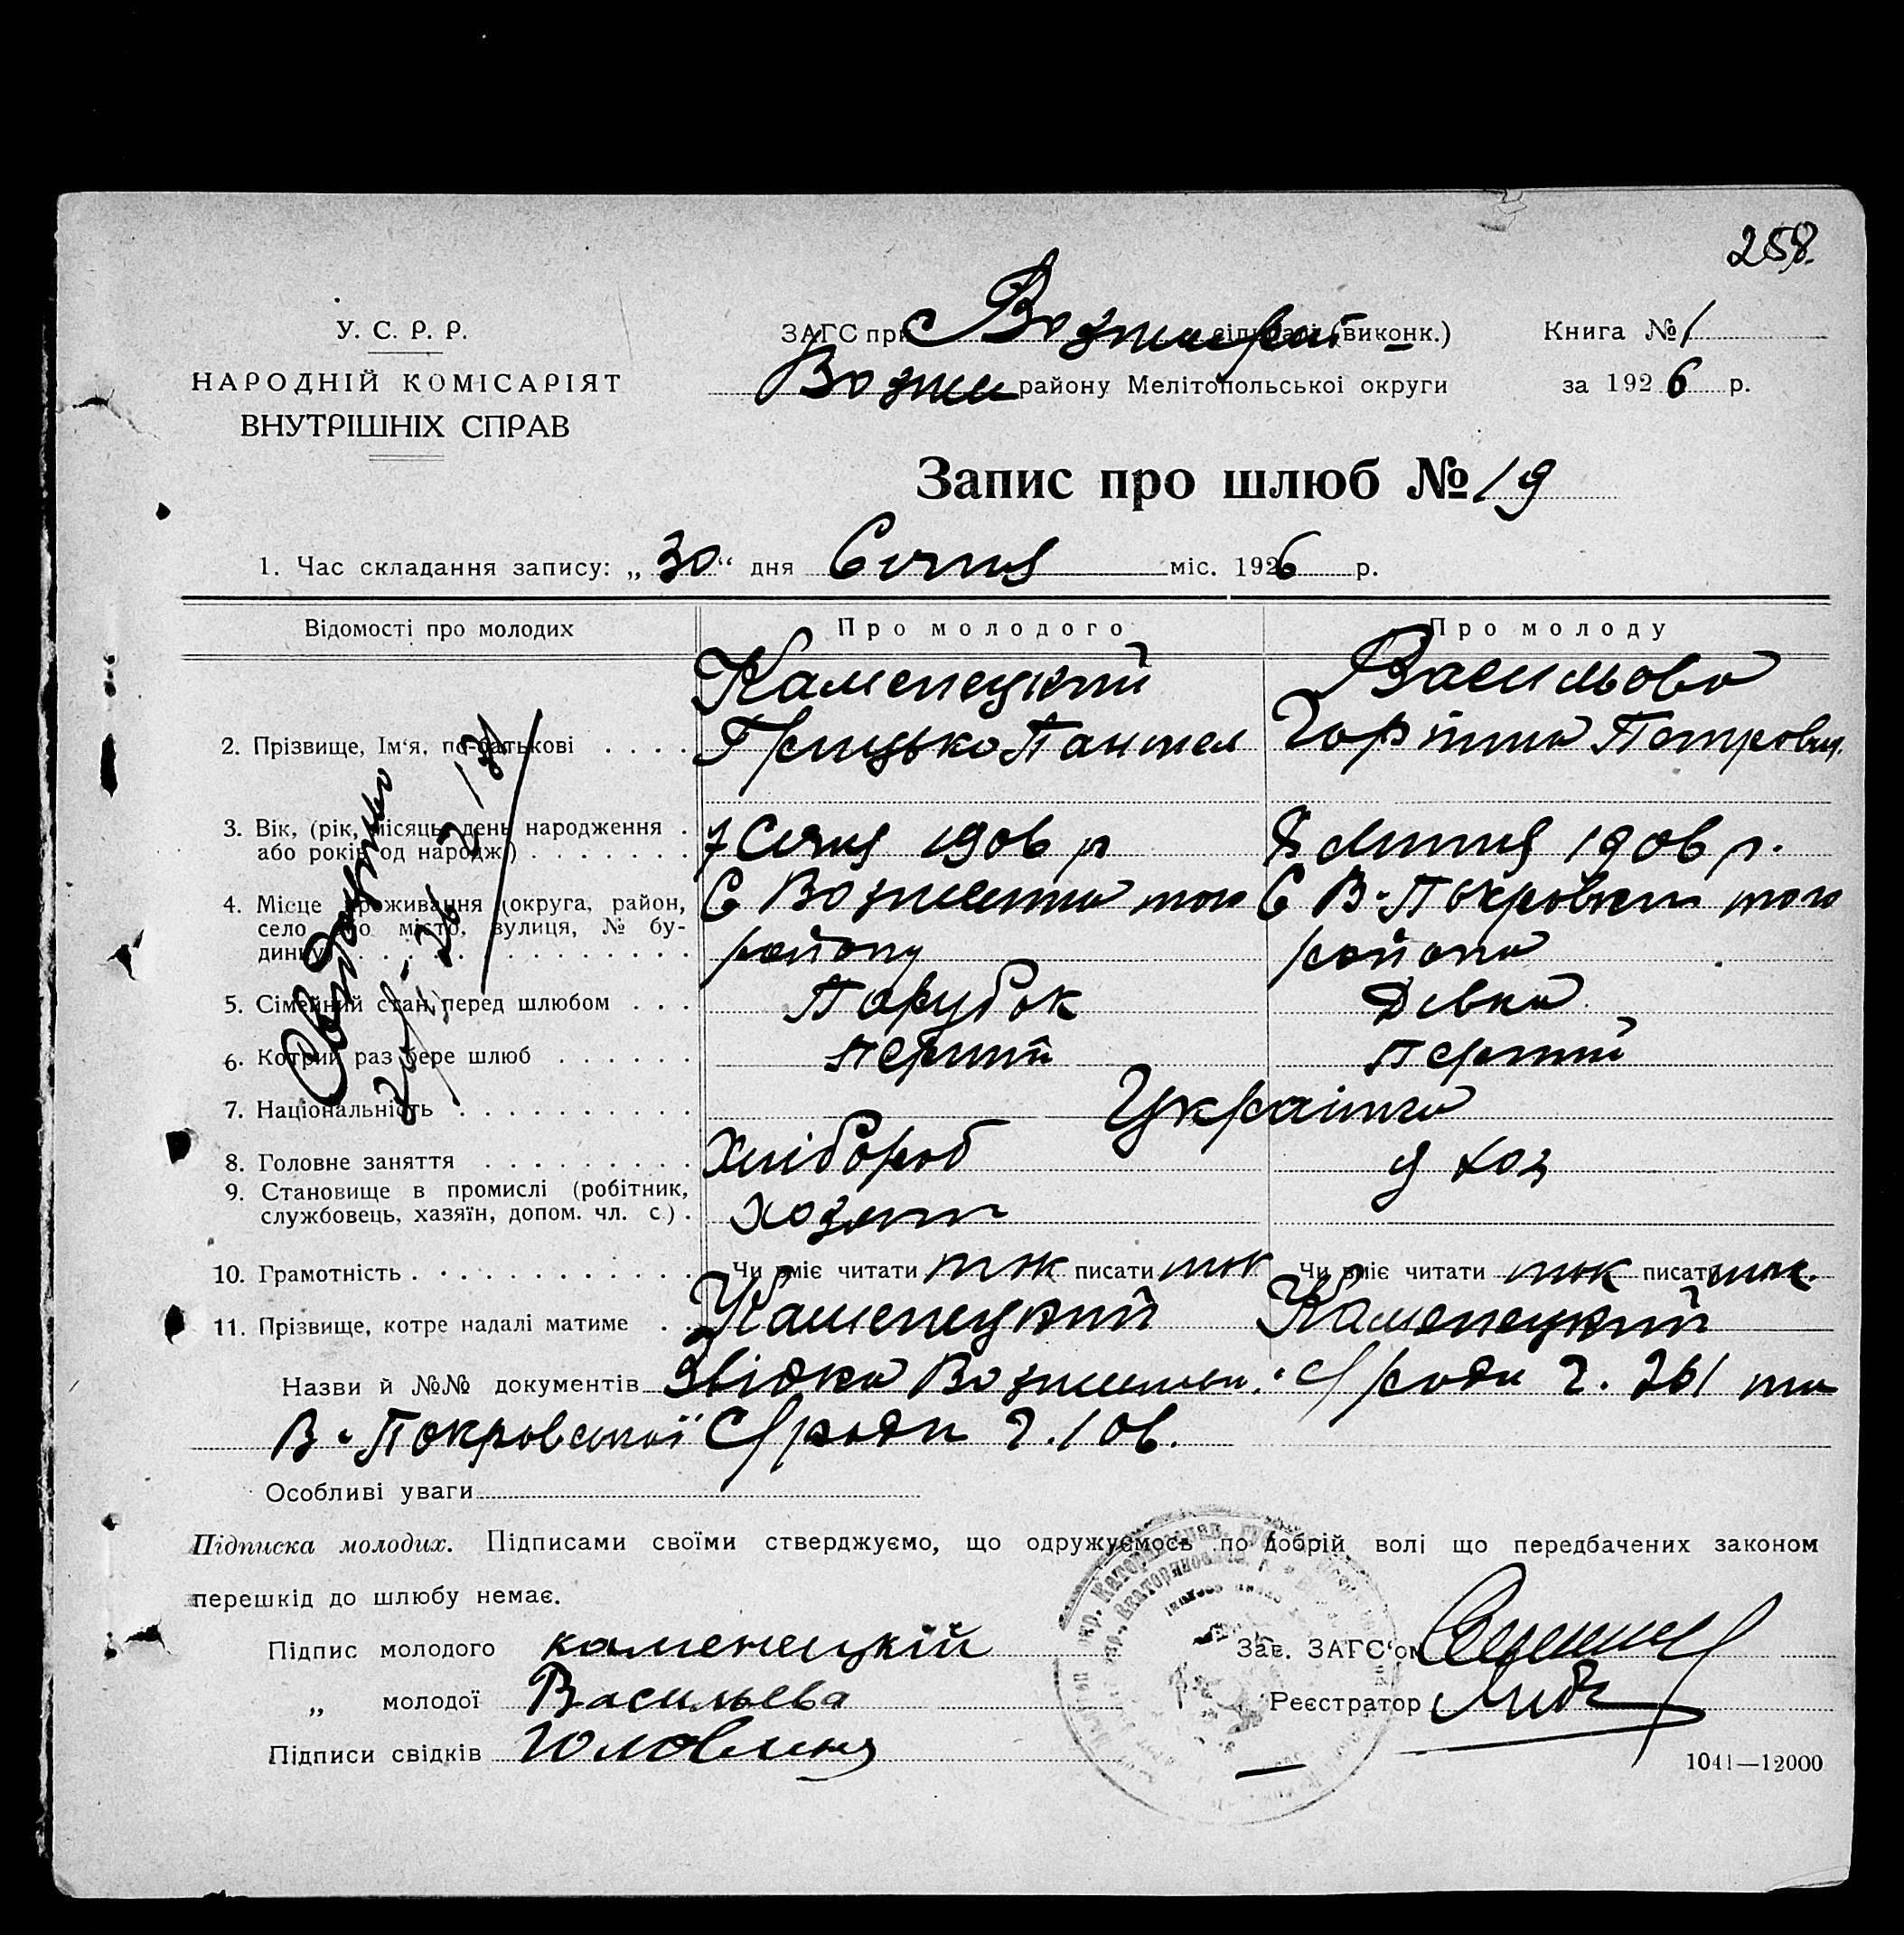 258.
У. С. Р. Р.
НАРОДНІЙ КОМІСАРІЯТ
ВНУТРІШНІХ СПРАВ
ЗАГС при (виконк.) Книга № 1
Возне району Мелітопольської округи за 1926 р.
Запис про шлюб № 19
1. Час складання запису: „30“ дня Січня міс. 1926 р.
Відомості про молодих Про молодого Про молоду
Каменецкий Васильова
2. Прізвище, Ім'я, по-батькові Грицько Пантел Петровн.
3. Вік, (рік, місяць, день народження 7 Січня 1906 р 8 Липня 1906 р.
або років од народж.)
4. Місце проживання (округа, район, С Вознесенка того С В-Покровки того
село або місто, вулиця, № бу-
динку) району района
5. Сімейний стан перед шлюбом Парубок Дівка
6. Котрий раз бере шлюб Перший Перший
7. Національність Україн
8. Головне заняття Хлібороб д хоз
9. Становище в промислі (робітник,
службовець, хазяїн, допом. чл. с.) хозяин
10. Грамотність Чи вміє читати так писати так Чи вміє читати так писати так.
11. Прізвище, котре надалі матиме Каменецкий Каменецкий
Назви й №№ документів Звідка С/ради 2. 261 та
В-Покровської С/ради 2. 106.
Особливі уваги
Підписка молодих. Підписами своїми стверджуємо, що одружуємось по добрій волі що передбачених законом
перешкід до шлюбу немає.
Підпис молодого каменецкій Зав. ЗАГС'ом
„ молодої Васильева Реєстратор
Підписи свідків
1041—12000